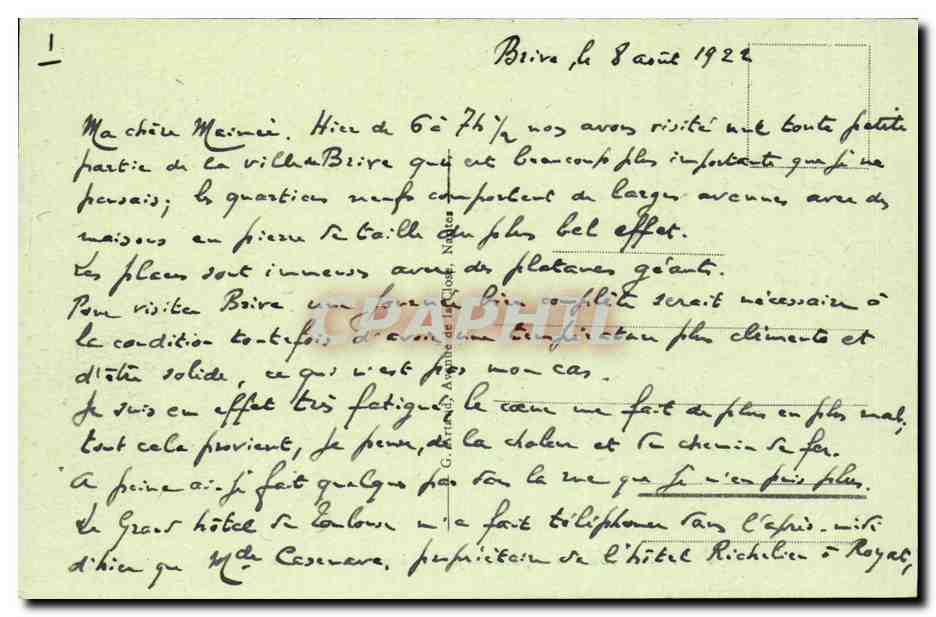 1
Brive, le 8 août 1922
Ma chère Maimée. Hier de 6 à 7h 1/2 nos avons visité une toute petite
partie de la ville de Brive qui est beaucoup plus importante que je ne
pensais; les quartiers neufs comportent de larges avenues avec des
maisons en pierre de taille du plus bel effet.
Les places sont immenses avec des platanes géants.
Pour visiter Brive une journée bien complète serait nécessaire à
la condition toutefois d'avoir une température plus clémente et
d'être solide, ce qui n'est pas mon cas.
Je suis en effet très fatigué, le cœur me fait de plus en plus mal;
tout cela provient, je pense, de la chaleur et du chemin de fer.
A peine ai-je fait quelques pas dans la rue que je n'en puis plus.
Le Grand hôtel de Toulouse m'a fait téléphoner dans l'après-midi
d'hier que Mde Casenave, propriétaire de l'hôtel Richelieu à Royat,
G. Artaud, Avenue de la Close, Nantes
CPAPHIL